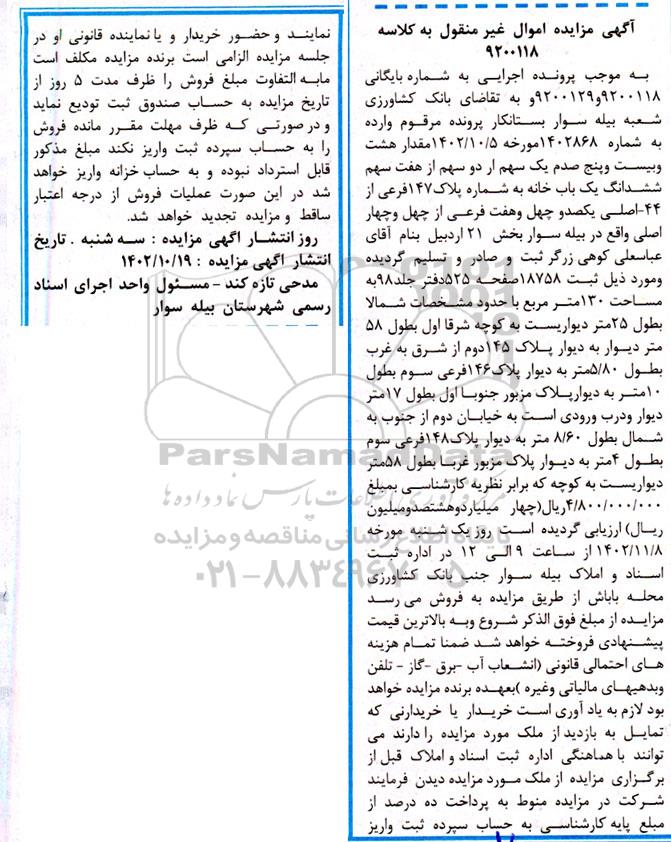 آگهی مزایده اموال غیر منقول به کلاسه
۹۲۰۰۱۱۸
به موجب پرونده اجرایی به شماره بایگانی
۹۲۰۰۱۱۸و۹۲۰۰۱۲۹و به تقاضای بانک کشاورزی
شعبه بیله سوار بستانکار پرونده مرقوم وارده
به شماره ۱۴۰۲۸۶۸مورخه ۱۴۰۲/۱۰/۵مقدار هشت
وبیست وپنج صدم یک سهم از دو سهم از هفت سهم
ششدانگ یک باب خانه به شماره پلاک۱۴۷فرعی از
۴۴-اصلی یکصدو چهل وهفت فرعی از چهل وچهار
اصلی واقع در بیله سوار بخش ۲۱ اردبیل بنام آقای
عباسعلی کوهی زرگر ثبت و صادر و تسلیم گردیده
ومورد ذیل ثبت ۱۸۷۵۸صفحه ۵۲۵دفتر جلد۹۸به
مساحت ۱۳۰متر مربع با حدود مشخصات شمالا
بطول ۲۵متر دیواریست به کوچه شرقا اول بطول ۵۸
متر دیوار به دیوار پلاک ۱۴۵دوم از شرق به غرب
بطول ۵/۸۰متر به دیوار پلاک۱۴۶فرعی سوم بطول
۱۰متر به دیوارپلاک مزبور جنوبا اول بطول ۱۷متر
دیوار ودرب ورودی است به خیابان دوم از جنوب به
شمال بطول ۸/۶۰ متر به دیوار پلاک۱۴۸فرعی سوم
بطول ۴متر به دیوار پلاک مزبور غربا بطول ۵۸متر
دیواریست به کوچه که برابر نظریه کارشناسی بمبلغ
۴/۸۰۰/۰۰۰/۰۰۰ریال(چهار میلیاردوهشتصدومیلیون
ریال) ارزیابی گردیده است روز یک شنبه مورخه
۱۴۰۲/۱۱/۸ از ساعت ۹ الی ۱۲ در اداره ثبت
اسناد و املاک بیله سوار جنب بانک کشاورزی
محله باباش از طریق مزایده به فروش می رسد
مزایده از مبلغ فوق الذکر شروع وبه بالاترین قیمت
پیشنهادی فروخته خواهد شد ضمنا تمام هزینه
های احتمالی قانونی (انشعاب آب -برق -گاز - تلفن
وبدهیهای مالیاتی وغیره )بعهده برنده مزایده خواهد
بود لازم به یاد آوری است خریدار یا خریدارنی که
تمایل به بازدید از ملک مورد مزایده را دارند می
توانند با هماهنگی اداره ثبت اسناد و املاک قبل از
برگزاری مزایده از ملک مورد مزایده دیدن فرمایند
شرکت در مزایده منوط به پرداخت ده درصد از
مبلغ پایه کارشناسی به حساب سپرده ثبت واریز
نمایند و حضور خریدار و یا نماینده قانونی او در
جلسه مزایده الزامی است برنده مزایده مکلف است
مابه التفاوت مبلغ فروش را ظرف مدت ۵ روز از
تاریخ مزایده به حساب صندوق ثبت تودیع نماید
و در صورتی که ظرف مهلت مقرر مانده فروش
را به حساب سپرده ثبت واریز نکند مبلغ مذکور
قابل استرداد نبوده و به حساب خزانه واریز خواهد
شد در این صورت عملیات فروش از درجه اعتبار
ساقط و مزایده تجدید خواهد شد.
روز انتشار آگهی مزایده : سه شنبه . تاریخ
انتشار آگهی مزایده : ۱۴۰۲/۱۰/۱۹
مدحی تازه کند - مسئول واحد اجرای اسناد
رسمی شهرستان بیله سوار
ParsNamadData
پایگاه اطلاع رسانی مناقصه و مزایده
۰۲۱-۸۸۳۴۹۶۷۰-۵